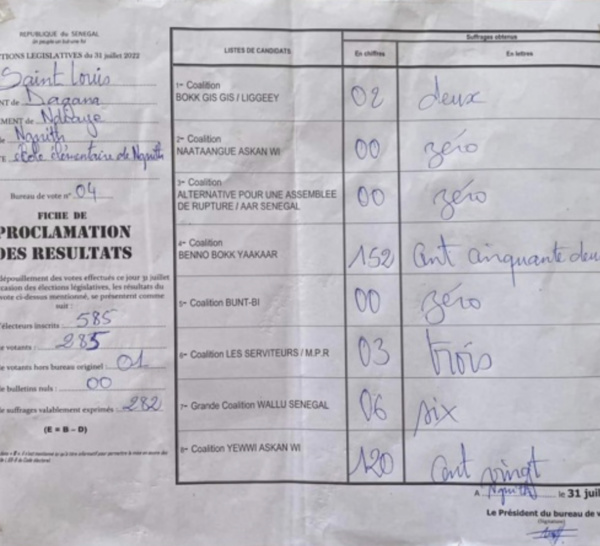 REPUBLIQUE DU SENEGAL
Un peuple-un but-une foi
TIONS LEGISLATIVES du 31 juillet 2022
Saint Louis
NT de Dagana
EMENT de Ndiaye
de Ngnith
E école élémentaire de Ngnith
Bureau de vote n° 04
FICHE DE
PROCLAMATION
DES RESULTATS
dépouillement des votes effectués ce jour 31 juillet
casion des élections législatives, les résultats du
vote ci-dessus mentionné, se présentent comme
suit :
d'électeurs inscrits : 585
de votants : 285
de votants hors bureau originel : 01
de bulletins nuls : 00
de suffrages valablement exprimés : 282
(E = B – D)
LISTES DE CANDIDATS
Suffrages obtenus
En chiffres
En lettres
1- Coalition
BOKK GIS GIS / LIGGEEY
02
deux
2- Coalition
NAATAANGUE ASKAN WI
00
zéro
3- Coalition
ALTERNATIVE POUR UNE ASSEMBLEE
DE RUPTURE / AAR SENEGAL
00
zéro
4- Coalition
BENNO BOKK YAAKAAR
152
Cent cinquante deu
5- Coalition BUNT-BI
00
zéro
6- Coalition LES SERVITEURS / M.P.R
03
trois
7- Grande Coalition WALLU SENEGAL
06
six
8- Coalition YEWWI ASKAN WI
120
Cent vingt
A Ngnith le 31 juil
Le Président du bureau de v
(Signature)